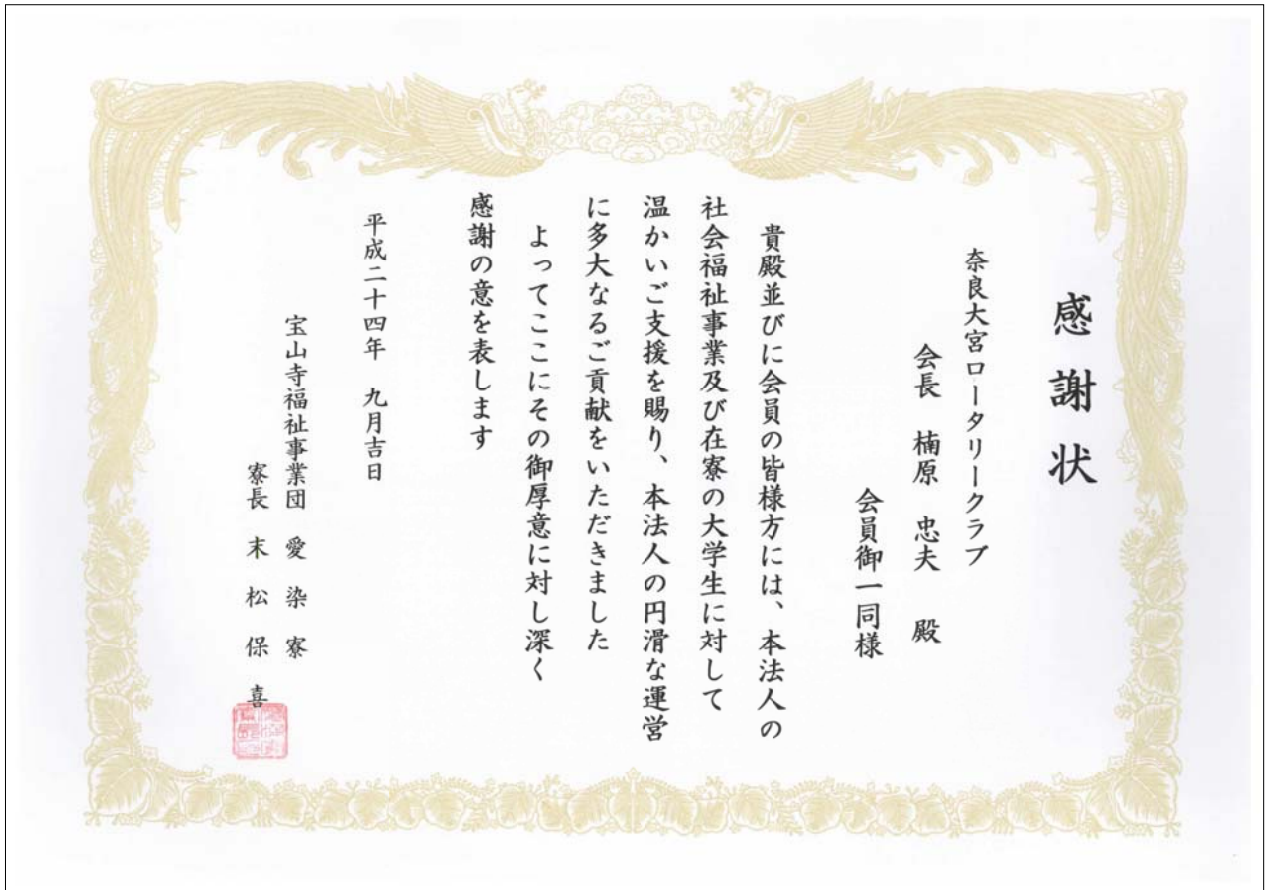 感謝状
奈良大宮ロータリークラブ
会長 楠原 忠夫 殿
会員御一同様
貴殿並びに会員の皆様方には、本法人の
社会福祉事業及び在寮の大学生に対して
温かいご支援を賜り、本法人の円滑な運営
に多大なるご貢献をいただきました
よってここにその御厚意に対し深く
感謝の意を表します
平成二十四年 九月吉日
宝山寺福祉事業団 愛染寮
寮長 末松保喜